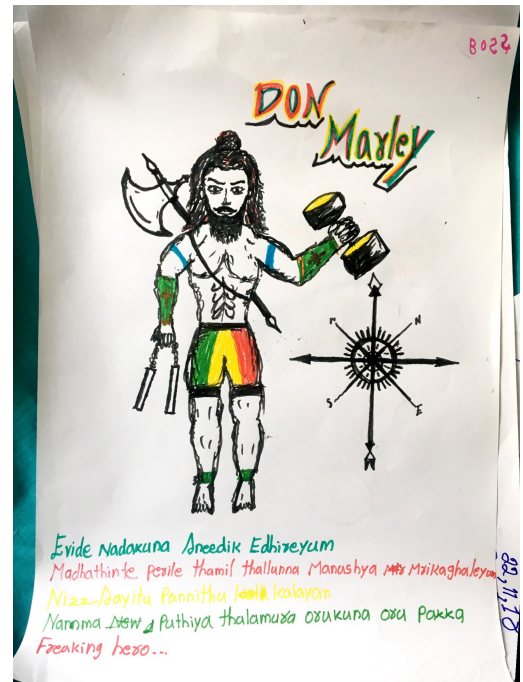 BOSS
DON
Marley
N
S
E
Evide Nadakuna Aneedik Edhireyum
Madhathinte perile thamil thallunna Manushya Mrikaghaleyum
Nizz Aayitu Pannithu kalayan
Namma New Puthiya thalamura orukuna oru pakka
Freaking hero...
22.11.18